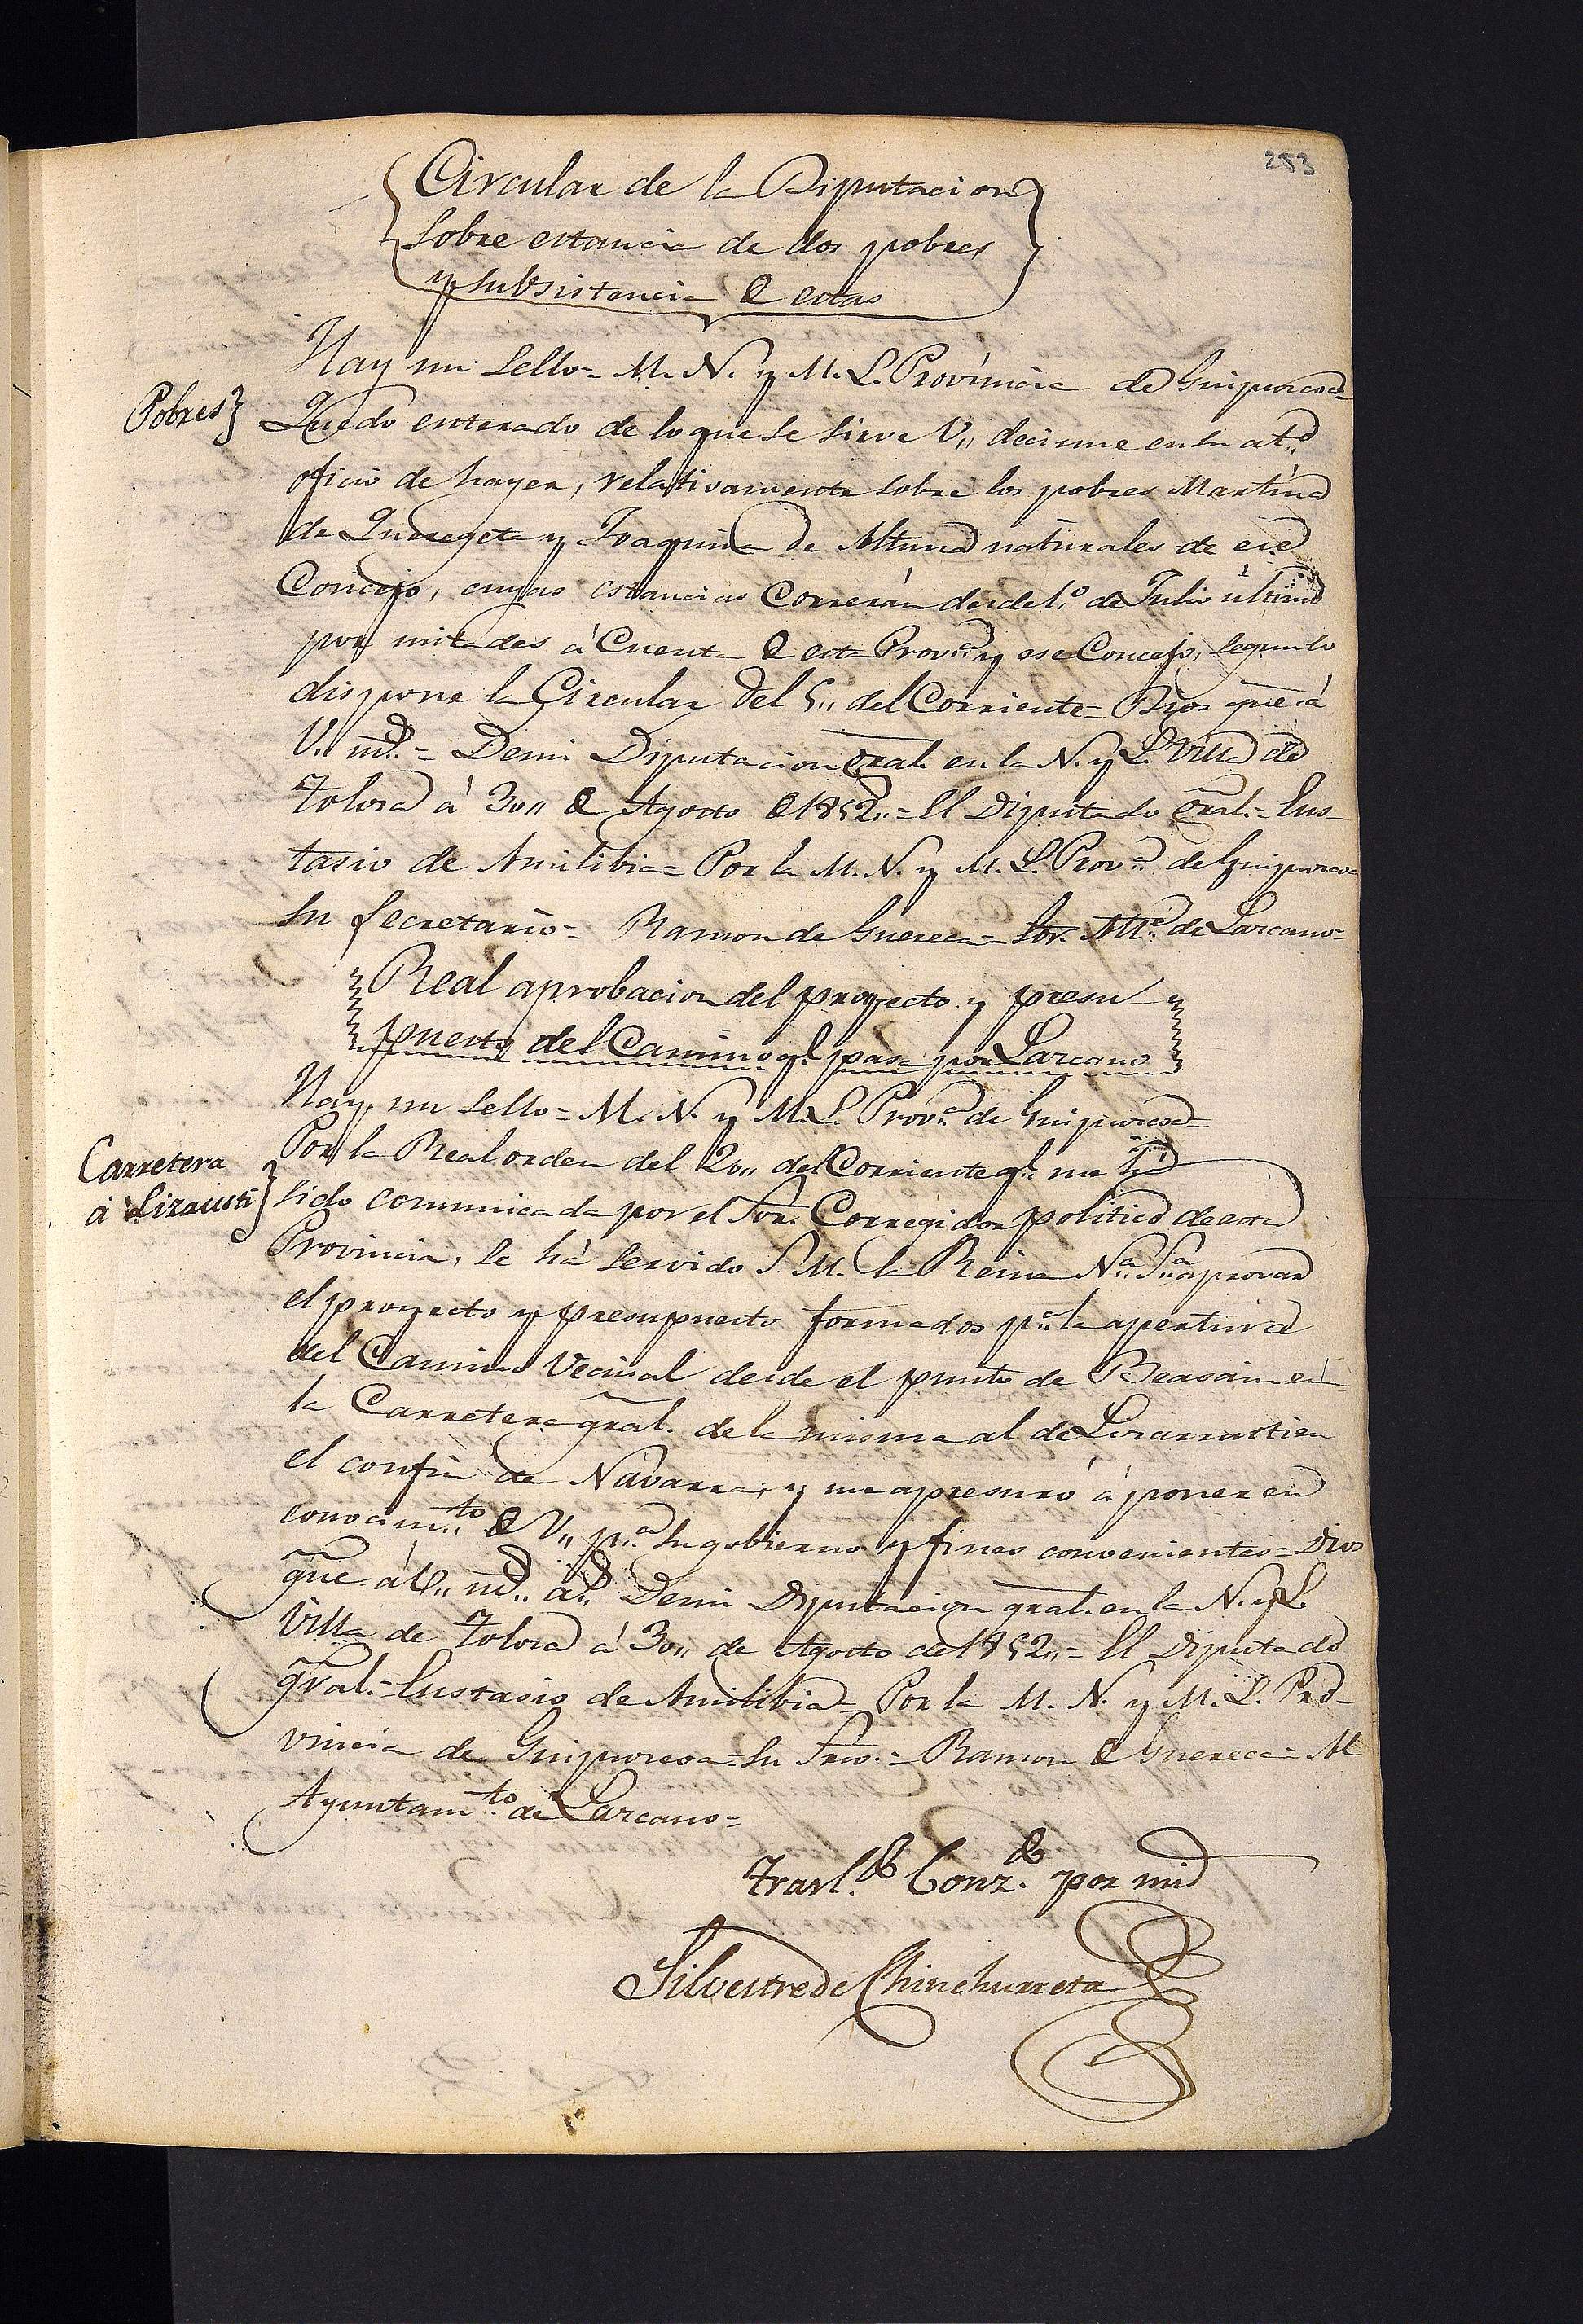 253
Circular de la Diputacion
sobre estancia de dos pobres
y subsistencia de estas
Hay un sello = M. N. y M. L. Provincia de Guipuzcoa =
Pobres
Quedo enterado de lo que se sirve V,, decirme en su at.º
oficio de hayer, relativamente sobre los pobres Martina
de Queregeta y Joaquina de Altuna naturales de ese
Concejo, cuyas estancias correrán desde 1.º de Julio último
por mitades á cuenta de esta Prov.ª y ese Concejo, segun lo
dispone la Circular del 5,, del Corriente = Dios gũe á
V. m.s = De mi Diputacion gral. en la N. y L. Villa de
Tolosa á 30,, de Agosto de 1852,, = El Diputado gral. = Eus-
tasio de Amilibia = Por la M. N. y M. L. Prov.ª de Guipuzcoa =
su Secretario = Ramon de Guereca = Sor. Alc.e de Lazcano =
Real aprobacion del proyecto y presu-
puesto del Camino q.e pasa por Lazcano
Hay un sello = M. N. y M. L. Prov.ª de Guipuzcoa =
Carretera
á Lizausti
Por la Real orden del 20,, del Corriente q.e me há
sido comunicada por el Sor. Corregidor politico de esta
Provincia, se há servido S. M. la Reina N.ª S.ª aprovar
el proyecto y presupuesto formados p.ª la apertura
del Camino Vecinal desde el punto de Beasain en
la Carretera gral. de la misma al de Lizarrusti en
el confin de Navarra; y me apresuro á poner en
conocim.to de V,, p.ª su gobierno y fines convenientes = Dios
gũe á V,, m.s a.s De mi Diputacion gral. en la N. y L.
Villa de Tolosa á 30,, de Agosto de 1852,, = El Diputado
gral. = Eustasio de Amilibia = Por la M. N. y M. L. Pro-
vincia de Guipuzcoa = su Srio. = Ramon de Guereca = Al
Ayuntam.to de Lazcano =
por mi
Silvestre de Chinchurreta